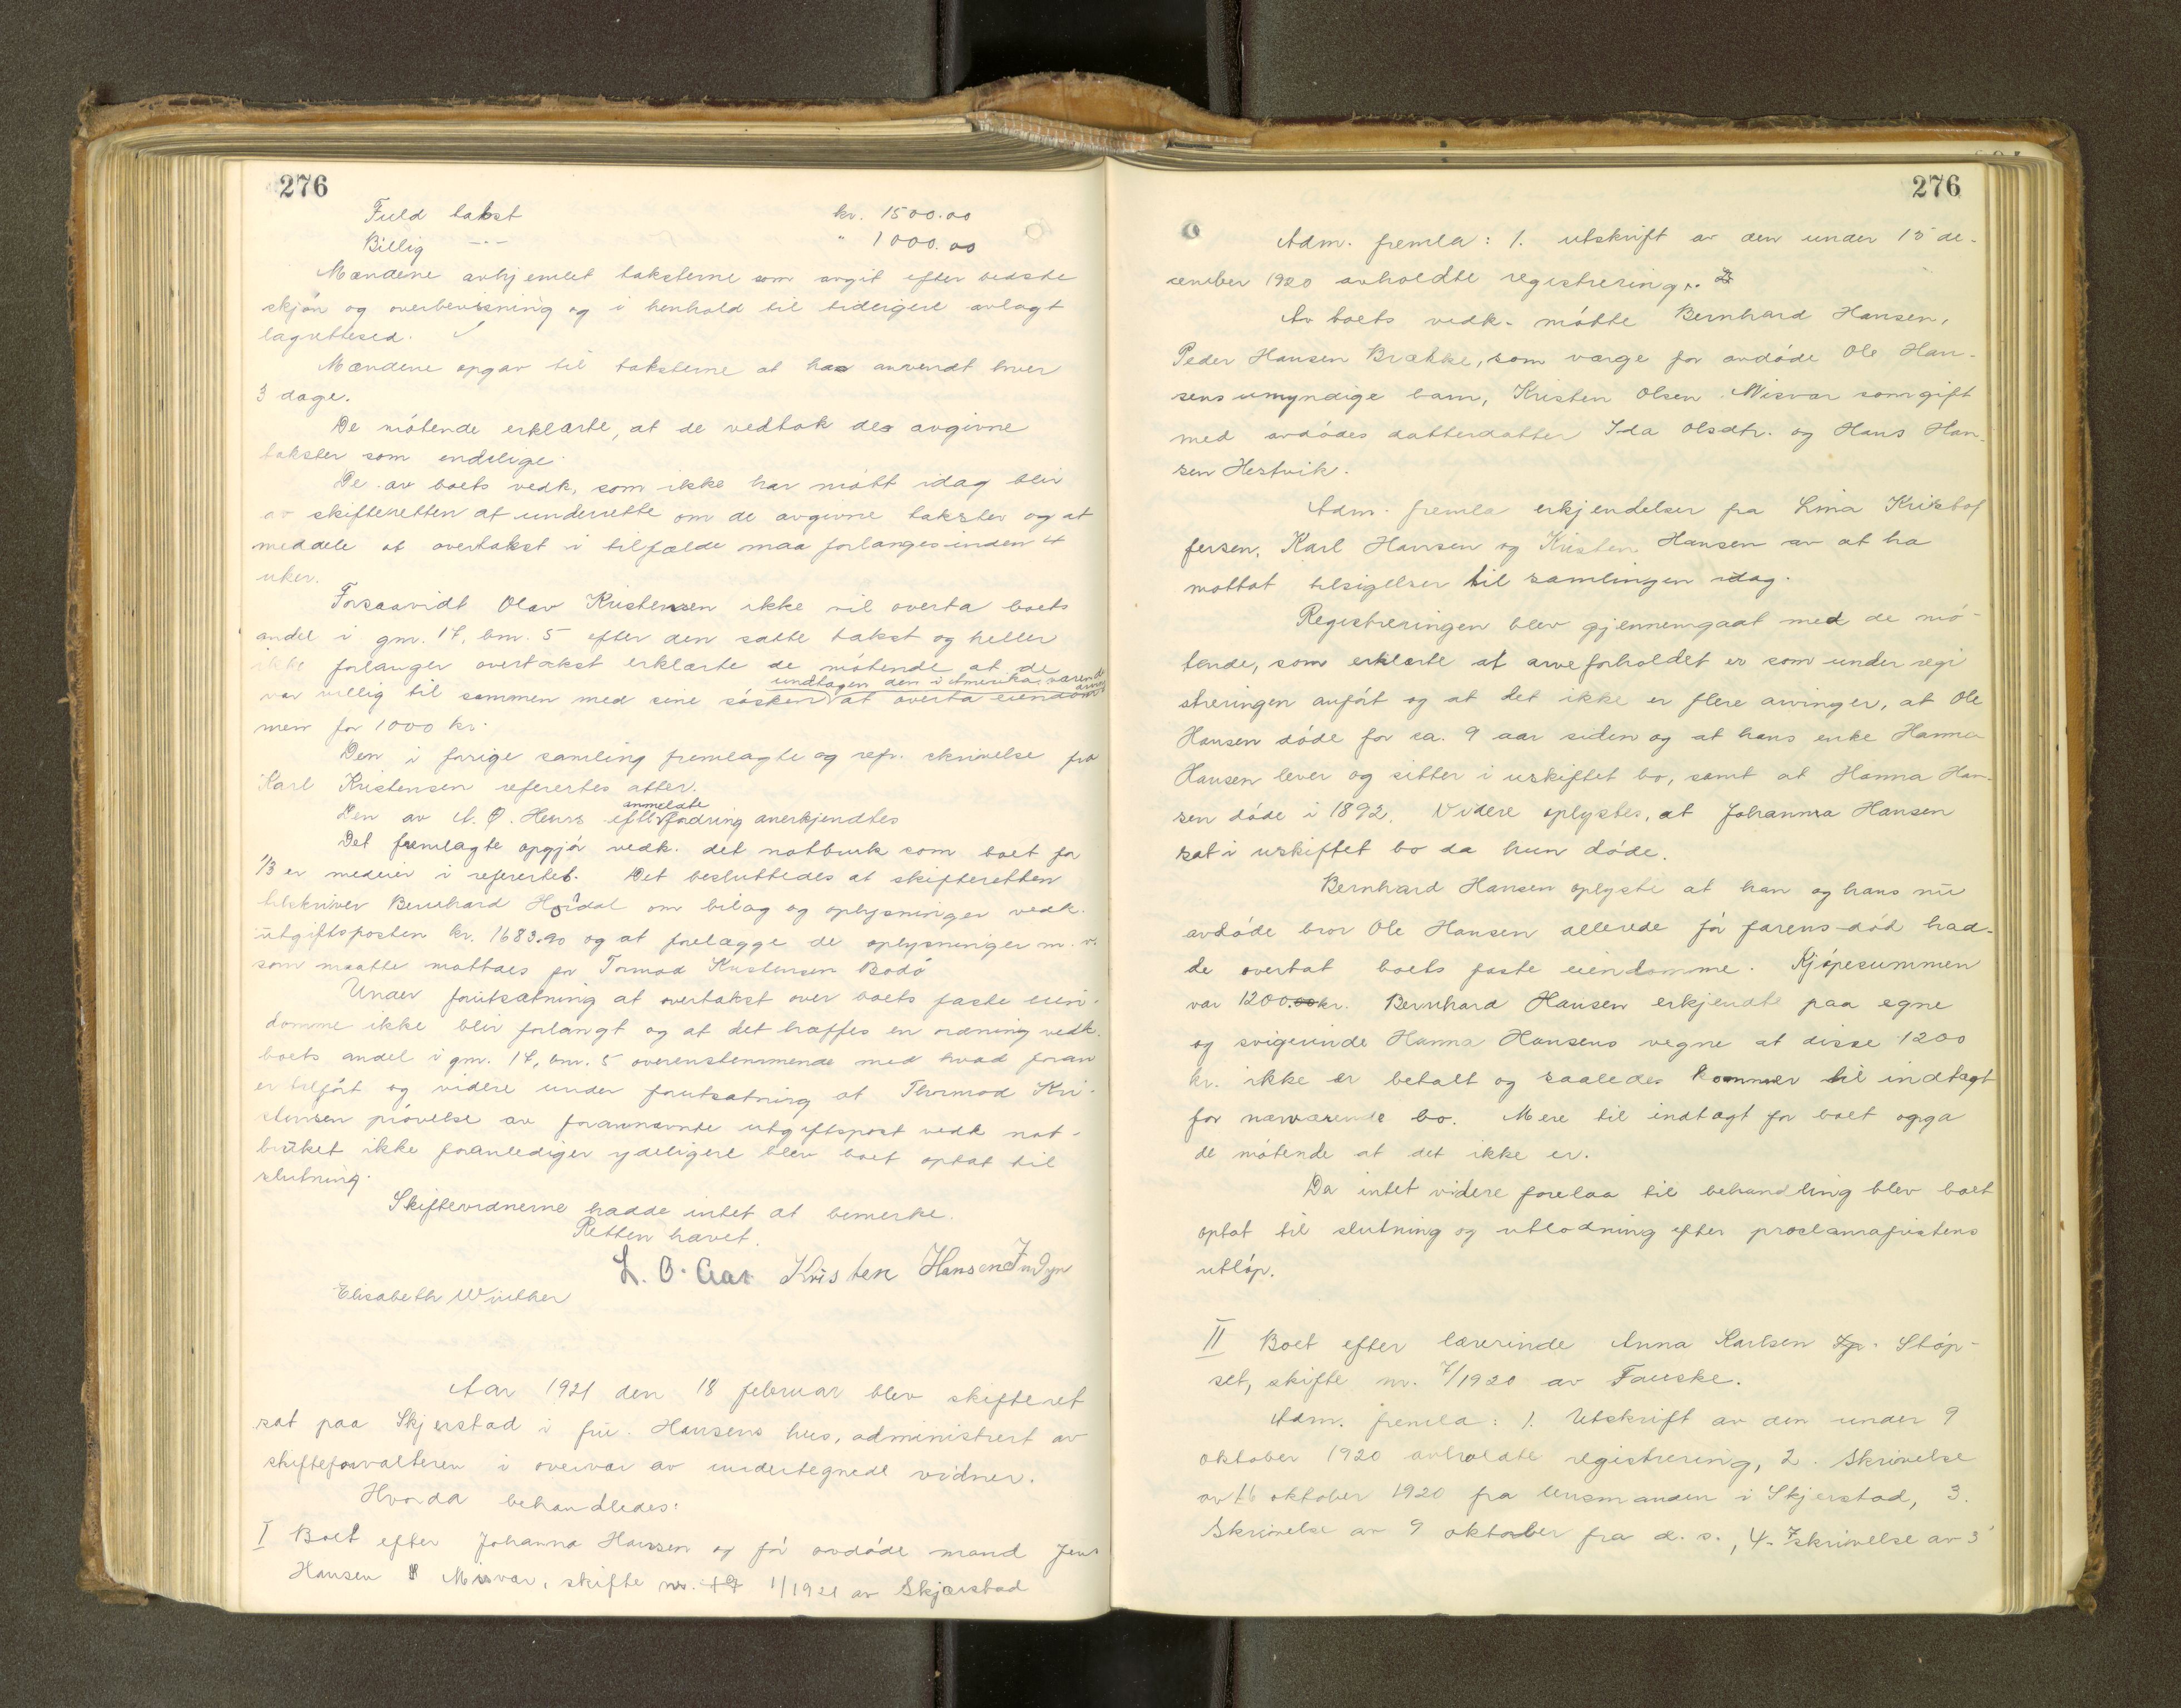 276
Fuld takst kr. 1500.00
Billig -"- " 1000.00
Mændene avhjemlet taksterne som avgit efter bedste
skjøn og overbevisning og i henhold til tidligere avlagt
lagrettesed.
Mændene opgav til taksterne at ha anvendt hver
3 dage.
De møtende erklærte, at de vedtok de avgivne
takster som endelige.
De av boets vedk. som ikke har møtt idag blir
av skifteretten at underrette om de avgivne takster og at
meddele at overtakst i tilfælde maa forlanges inden 4
uker.
Forsaavidt Olav Kristensen ikke vil overta boets
andel i gnr. 17, bnr. 5 efter den satte takst og heller
ikke forlanger overtakst erklærte de møtende at de
undtagen den i Amerika værende
var villig til sammen med sine søsken at overta eiendom-
men for 1000 kr.
Den i forige samling fremlagte og ref. skrivelse fra
Karl Kristensen referertes atter.
anmeldte
Den av A. O. Heurs efter fordring anerkjendtes
Det fremlagte opgjør vedk. det notbruk som boet for
1/3 er medeier i refertes. Det besluttedes at skifteretten
tilskriver Bernhard Hordal om bilag og oplysninger vedk.
utgiftsposten kr. 1683.90 og at forelægge de oplysninger m. v.
som maatte mottaes for Tormod Kristensen Bodø
Under forutsætning at overtakst over boets faste eien-
domme ikke blir forlangt og at det træffes en ordning vedk.
boets andel i gnr. 17, bnr. 5 overenstemmende med hvad foran
er tilført og videre under forutsætning at Thormod Kri-
stensen prøvelse av forannævnte utgiftspost vedk. not-
bruket ikke foranlediger ydeligere blev boet optat til
slutning.
Skiftevidnerne hadde intet at bemerke.
Retten hævet.
L. O. Aar Kristen Hansen
Elisabeth Winther
Aar 1921 den 18 februar blev skifteret
sat paa Skjerstad i fru Hansens hus, administrert av
skifteforvalteren i overvær av undertegnede vidner.
Hvorda behandledes:
I Boet efter Johanna Hansen og før avdøde mand Jens
Hansen Misvær, skifte nr. 1/1921 av Skjærstad
276
Adm. fremla: 1. utskrift av den under 15 de-
cember 1920 avholdte registrering.
Av boets vedk. møtte Bernhard Hansen,
Peder Hansen Brække, som værge for avdøde Ole Han-
sens umyndige barn, Kristen Olsen Misvær som gift
med avdødes datterdatter Ida Olsdtr. og Hans Han-
sen Hestvik.
Adm. fremla erkjendelser fra Lina Kristof
fersen, Karl Hansen og Kristen Hansen av at ha
mottat tilsigelser til samlingen idag.
Registreringen blev gjennemgaat med de mø-
tende, som erklærte at arveforholdet er som under regi
streringen anført og at det ikke er flere arvinger, at Ole
Hansen døde for ca. 9 aar siden og at hans enke Hanna
Hansen lever og sitter i uskiftet bo, samt at Hanna Han-
sen døde i 1892. Videre oplystes, at Johanna Hansen
sat i uskiftet bo da hun døde.
Bernhard Hansen oplyste at han og hans nu
avdøde bror Ole Hansen allerede før farens død had-
de overtat boets faste eiendomme. Kjøpesummen
var 1200.00 kr. Bernhard Hansen erkjendte paa egne
og svigerinde Hanna Hansens vegne at disse 1200
kr. ikke er betalt og saaledes kommer til indtægt
for nærværende bo. Mere til indtægt for boet opga
de møtende at det ikke er.
Da intet videre forelaa til behandling blev boet
optat til slutning og utlodning efter proclamafristens
utløp.
II Boet efter lærerinde Anna Karlsen Støp-
set, skifte nr. 7/1920 av Fauske.
Adm. fremla: 1. Utskrift av den under 9
oktober 1920 avholdte registrering, 2. Skrivelse
av 16 oktober 1920 fra lensmanden i Skjerstad, 3.
Skrivelse av 9 oktober fra d. s., 4. skrivelse av 3